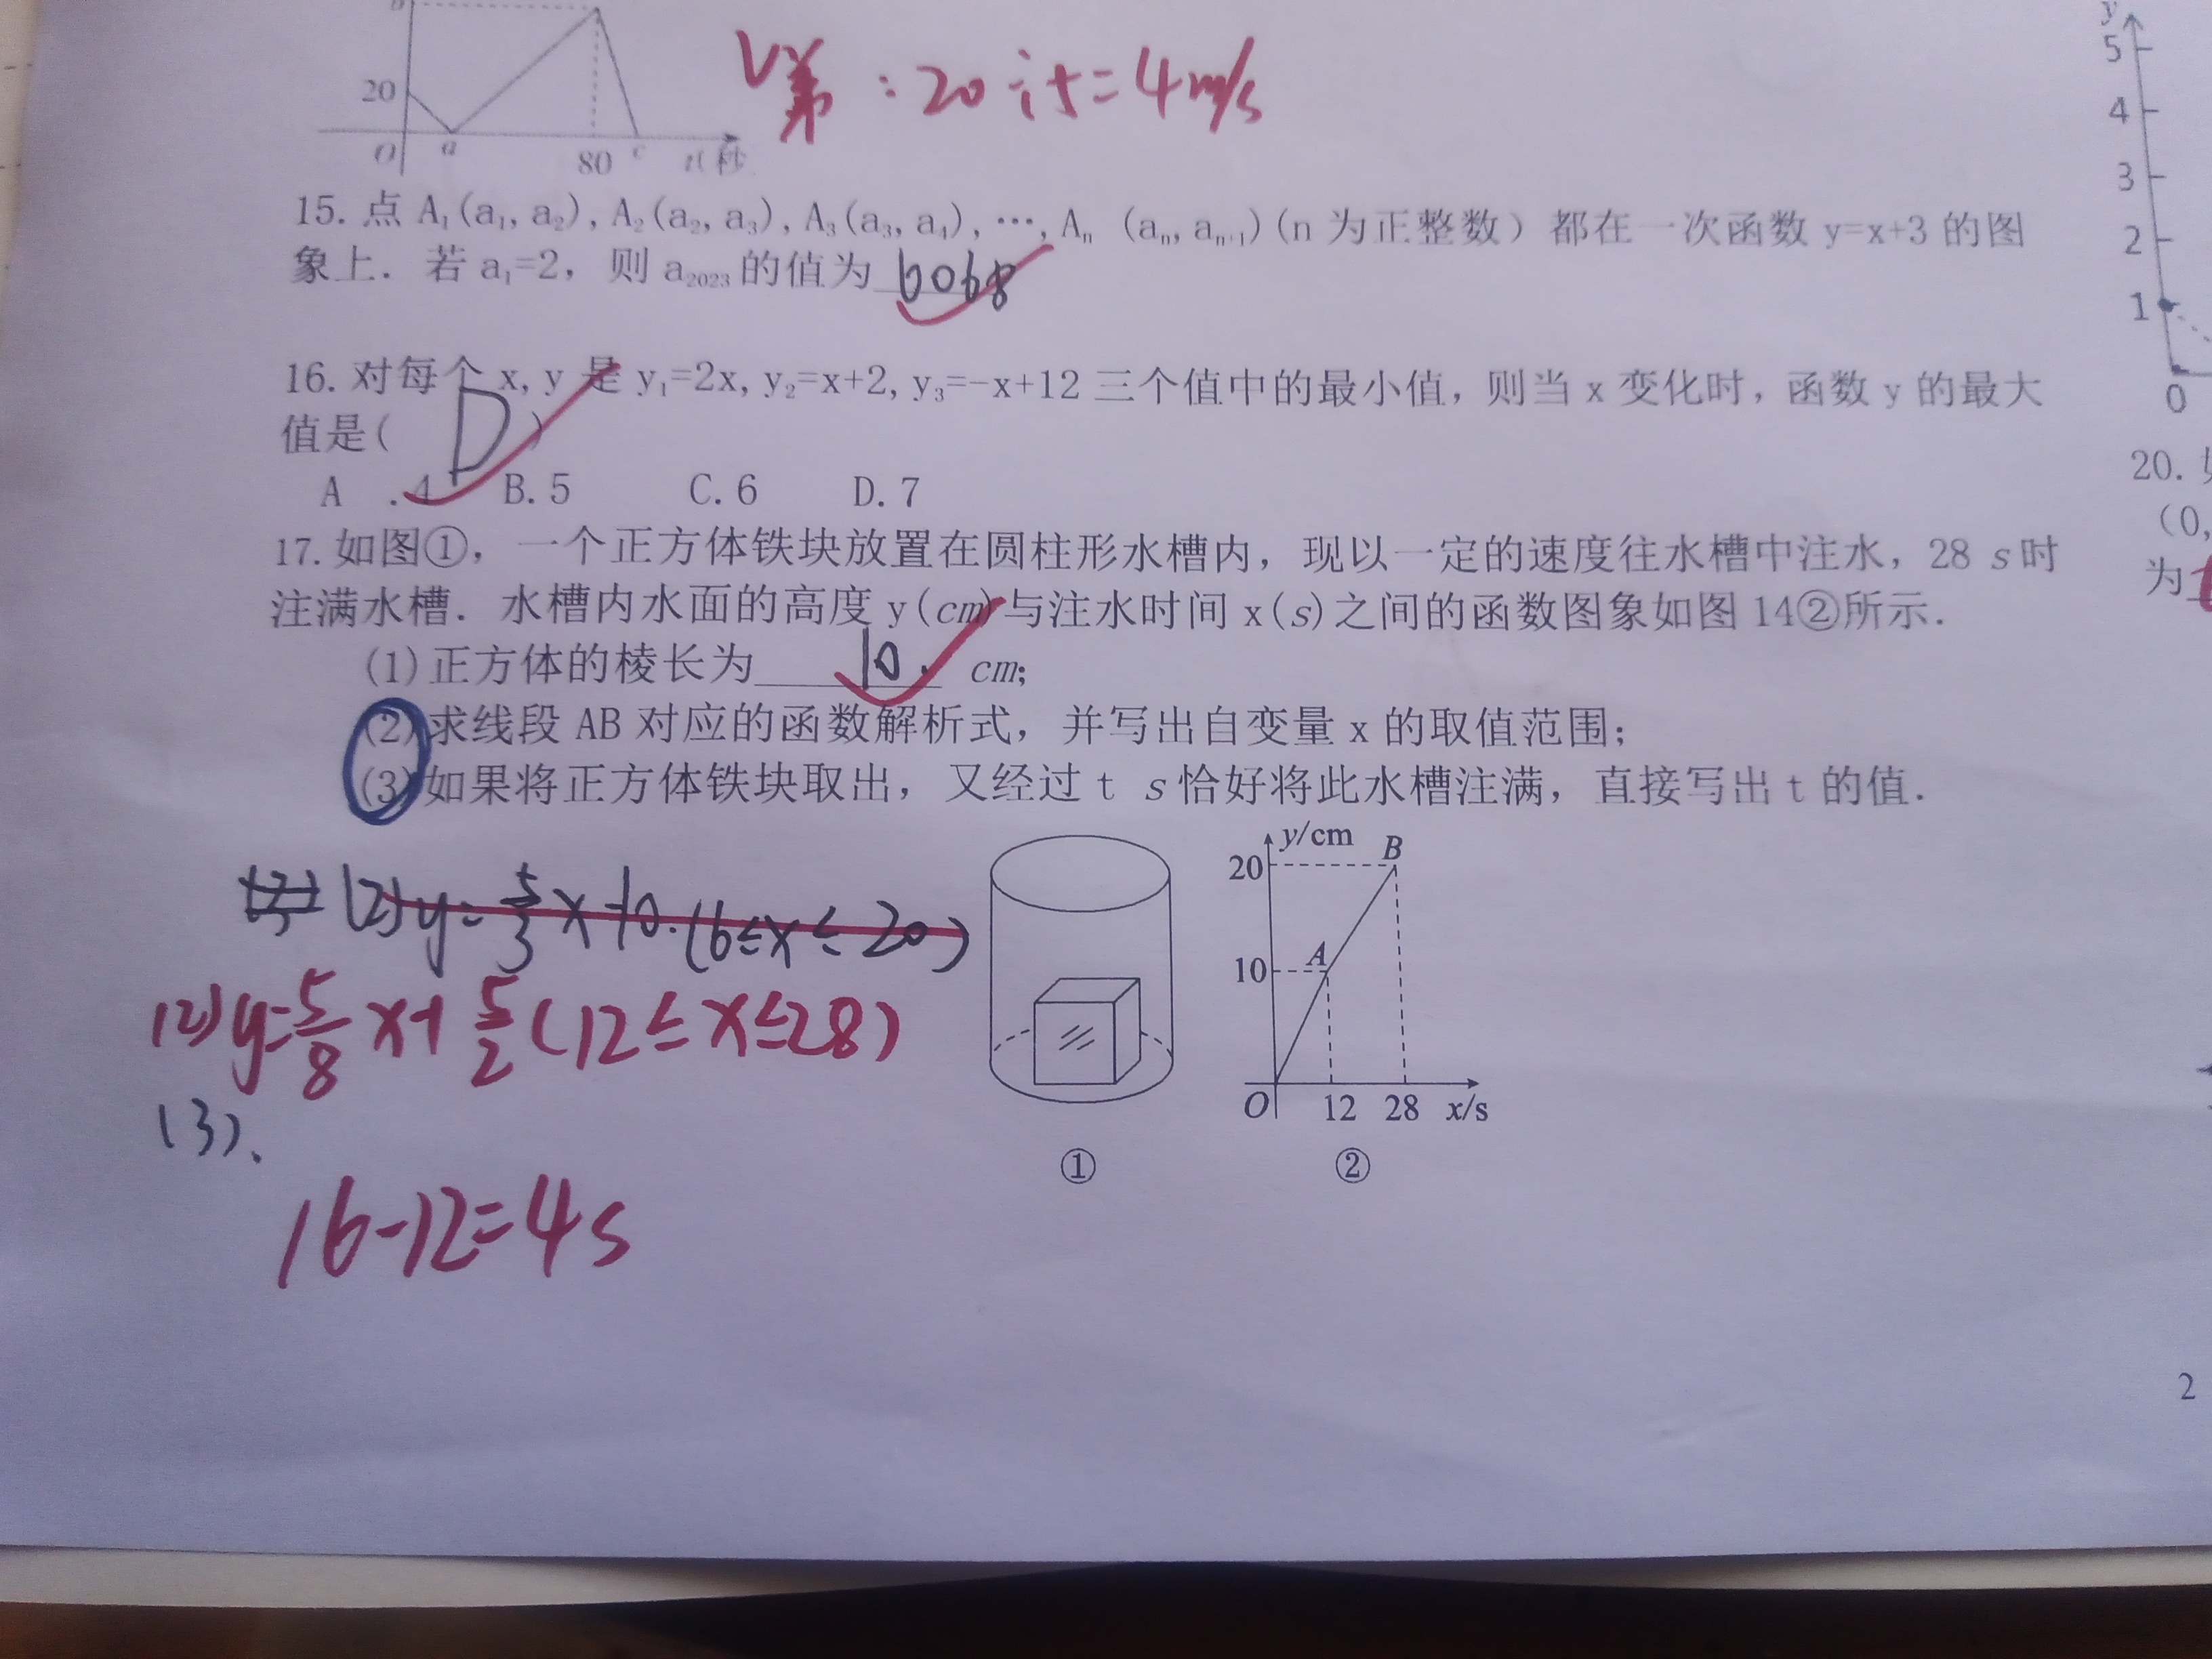 20
O a 80 c t(秒
V弟：20÷5=4m/s
15. 点 A₁(a₁, a₂), A₂(a₂, a₃), A₃(a₃, a₄), …, Aₙ (aₙ, aₙ₊₁)(n 为正整数）都在一次函数 y=x+3 的图
象上. 若 a₁=2, 则 a₂₀₂₃ 的值为 6068
16. 对每个 x, y 是 y₁=2x, y₂=x+2, y₃=-x+12 三个值中的最小值, 则当 x 变化时, 函数 y 的最大
值是( D )
A .4 B. 5 C. 6 D. 7
17. 如图①, 一个正方体铁块放置在圆柱形水槽内, 现以一定的速度往水槽中注水, 28 s 时
注满水槽. 水槽内水面的高度 y(cm)与注水时间 x(s)之间的函数图象如图 14②所示.
(1)正方体的棱长为 10. cm;
(2)求线段 AB 对应的函数解析式, 并写出自变量 x 的取值范围;
(3)如果将正方体铁块取出, 又经过 t s 恰好将此水槽注满, 直接写出 t 的值.
(2) y=5/3x-10.(6≤x≤20)
(2) y=5/8x+5/2(12≤x≤28)
(3).
16-12=4s
①
y/cm
20 B
10 A
O 12 28 x/s
②
y
5
4
3
2
1
0
20.
(0,
为
2